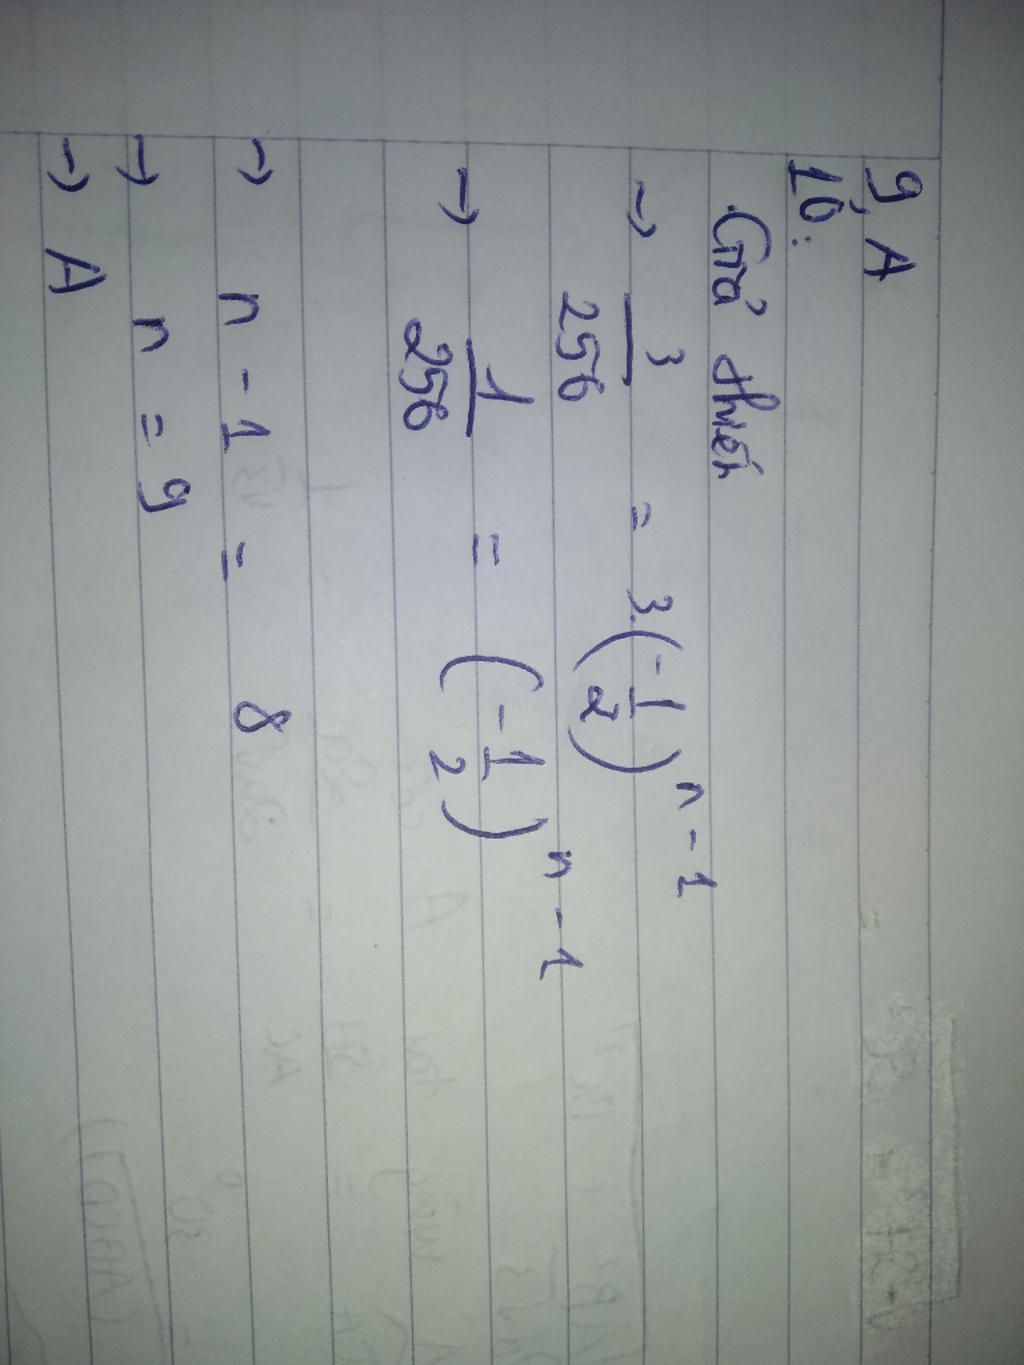 9, A
10:
Giả thiết
→ 3/256 = 3.(-1/2)^n-1
→ 1/256 = (-1/2)^n-1
→ n - 1 = 8
→ n = 9
→ A